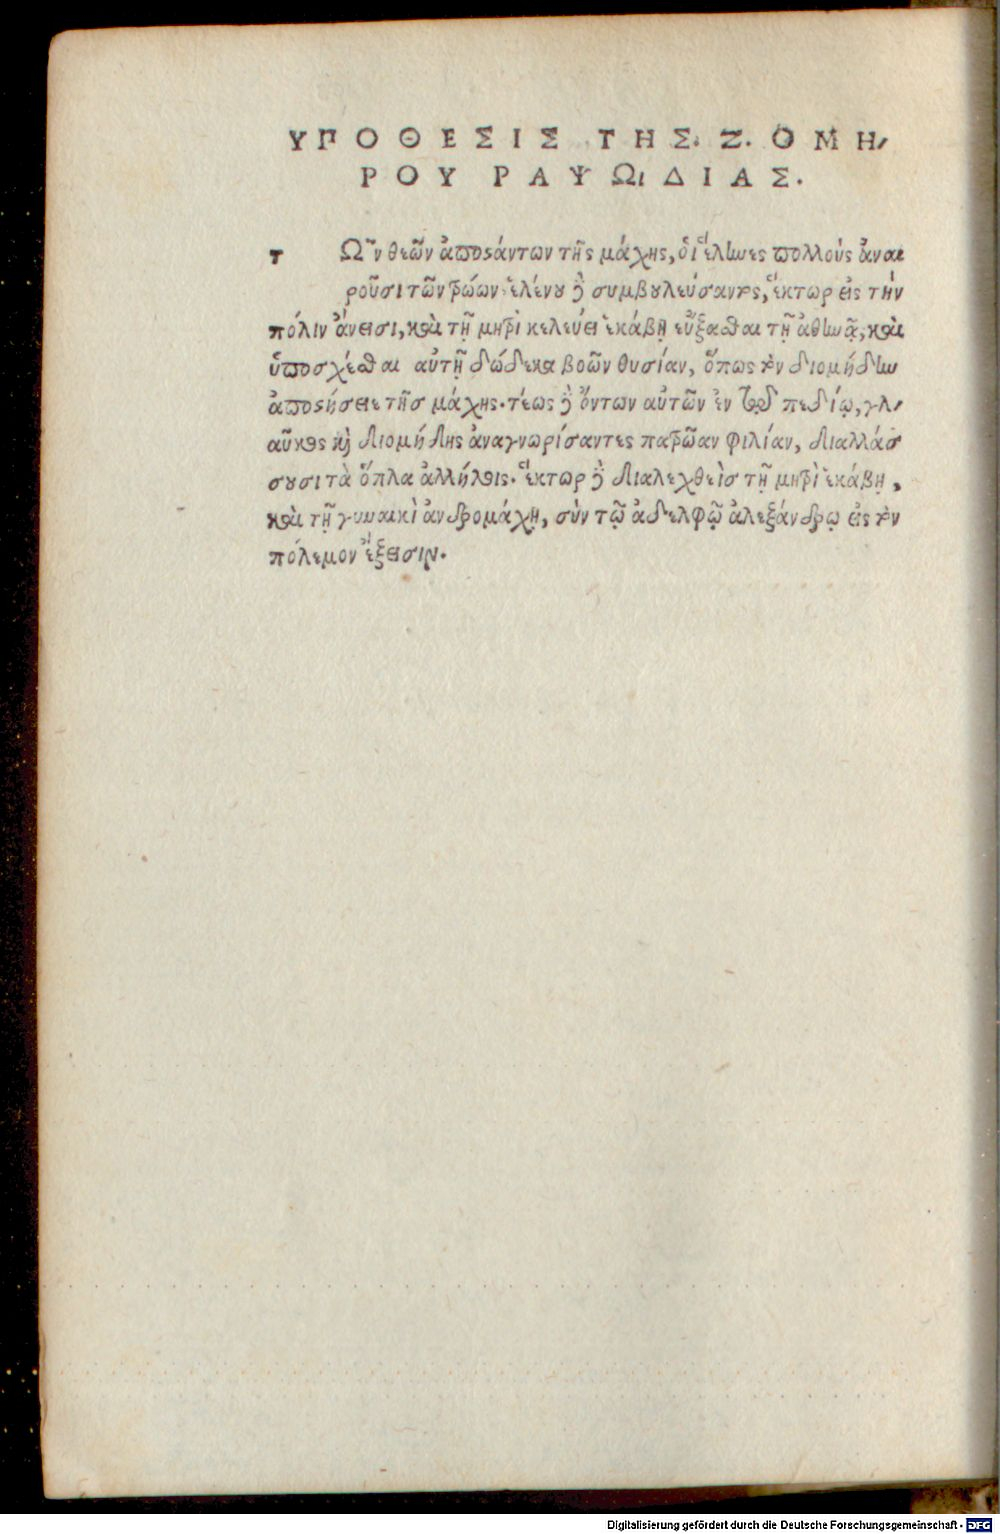 ΥΠΟΘΕΣΙΣ ΤΗΣ. Ζ. ΟΜΗ,
ΡΟΥ ΡΑΨΩιΔΙΑΣ.
τ Ω῀ν θεῶν ἀποςάντων τῆς μάχης, ὁι ἕλληνες πολλοὺς ἀναι
ροῦσι τῶν τρώων· ἑλένου δὲ συμβουλεύσαντος, ἕκτωρ εἰς τὴν
πόλιν ἄνεισι, καὶ τῇ μητρὶ κελεύει ἑκάβῃ εὔξασθαι τῇ ἀθηνᾷ, καὶ
ὑποσχέσθαι αὐτῇ δώδεκα βοῶν θυσίαν, ὅπως τὸν διομήδην
ἀποςήσειε τῆσ μάχης· τέως δὲ ὄντων αὐτῶν ἐν τῷ πεδίῳ, γλ,
αῦκος καὶ Διομήδης ἀναγνωρίσαντες πατρῴαν φιλίαν, διαλλάσ
σουσι τὰ ὅπλα ἀλλήλοις. ἕκτωρ δὲ διαλεχθεὶσ τῇ μητρὶ ἑκάβῃ,
καὶ τῇ γυναικὶ ἀνδρομάχῃ, σὺν τῷ ἀδελφῷ ἀλεξάνδρῳ εἰς τὸν
πόλεμον ἔξεισιν.
Digitalisierung gefördert durch die Deutsche Forschungsgemeinschaft - DFG